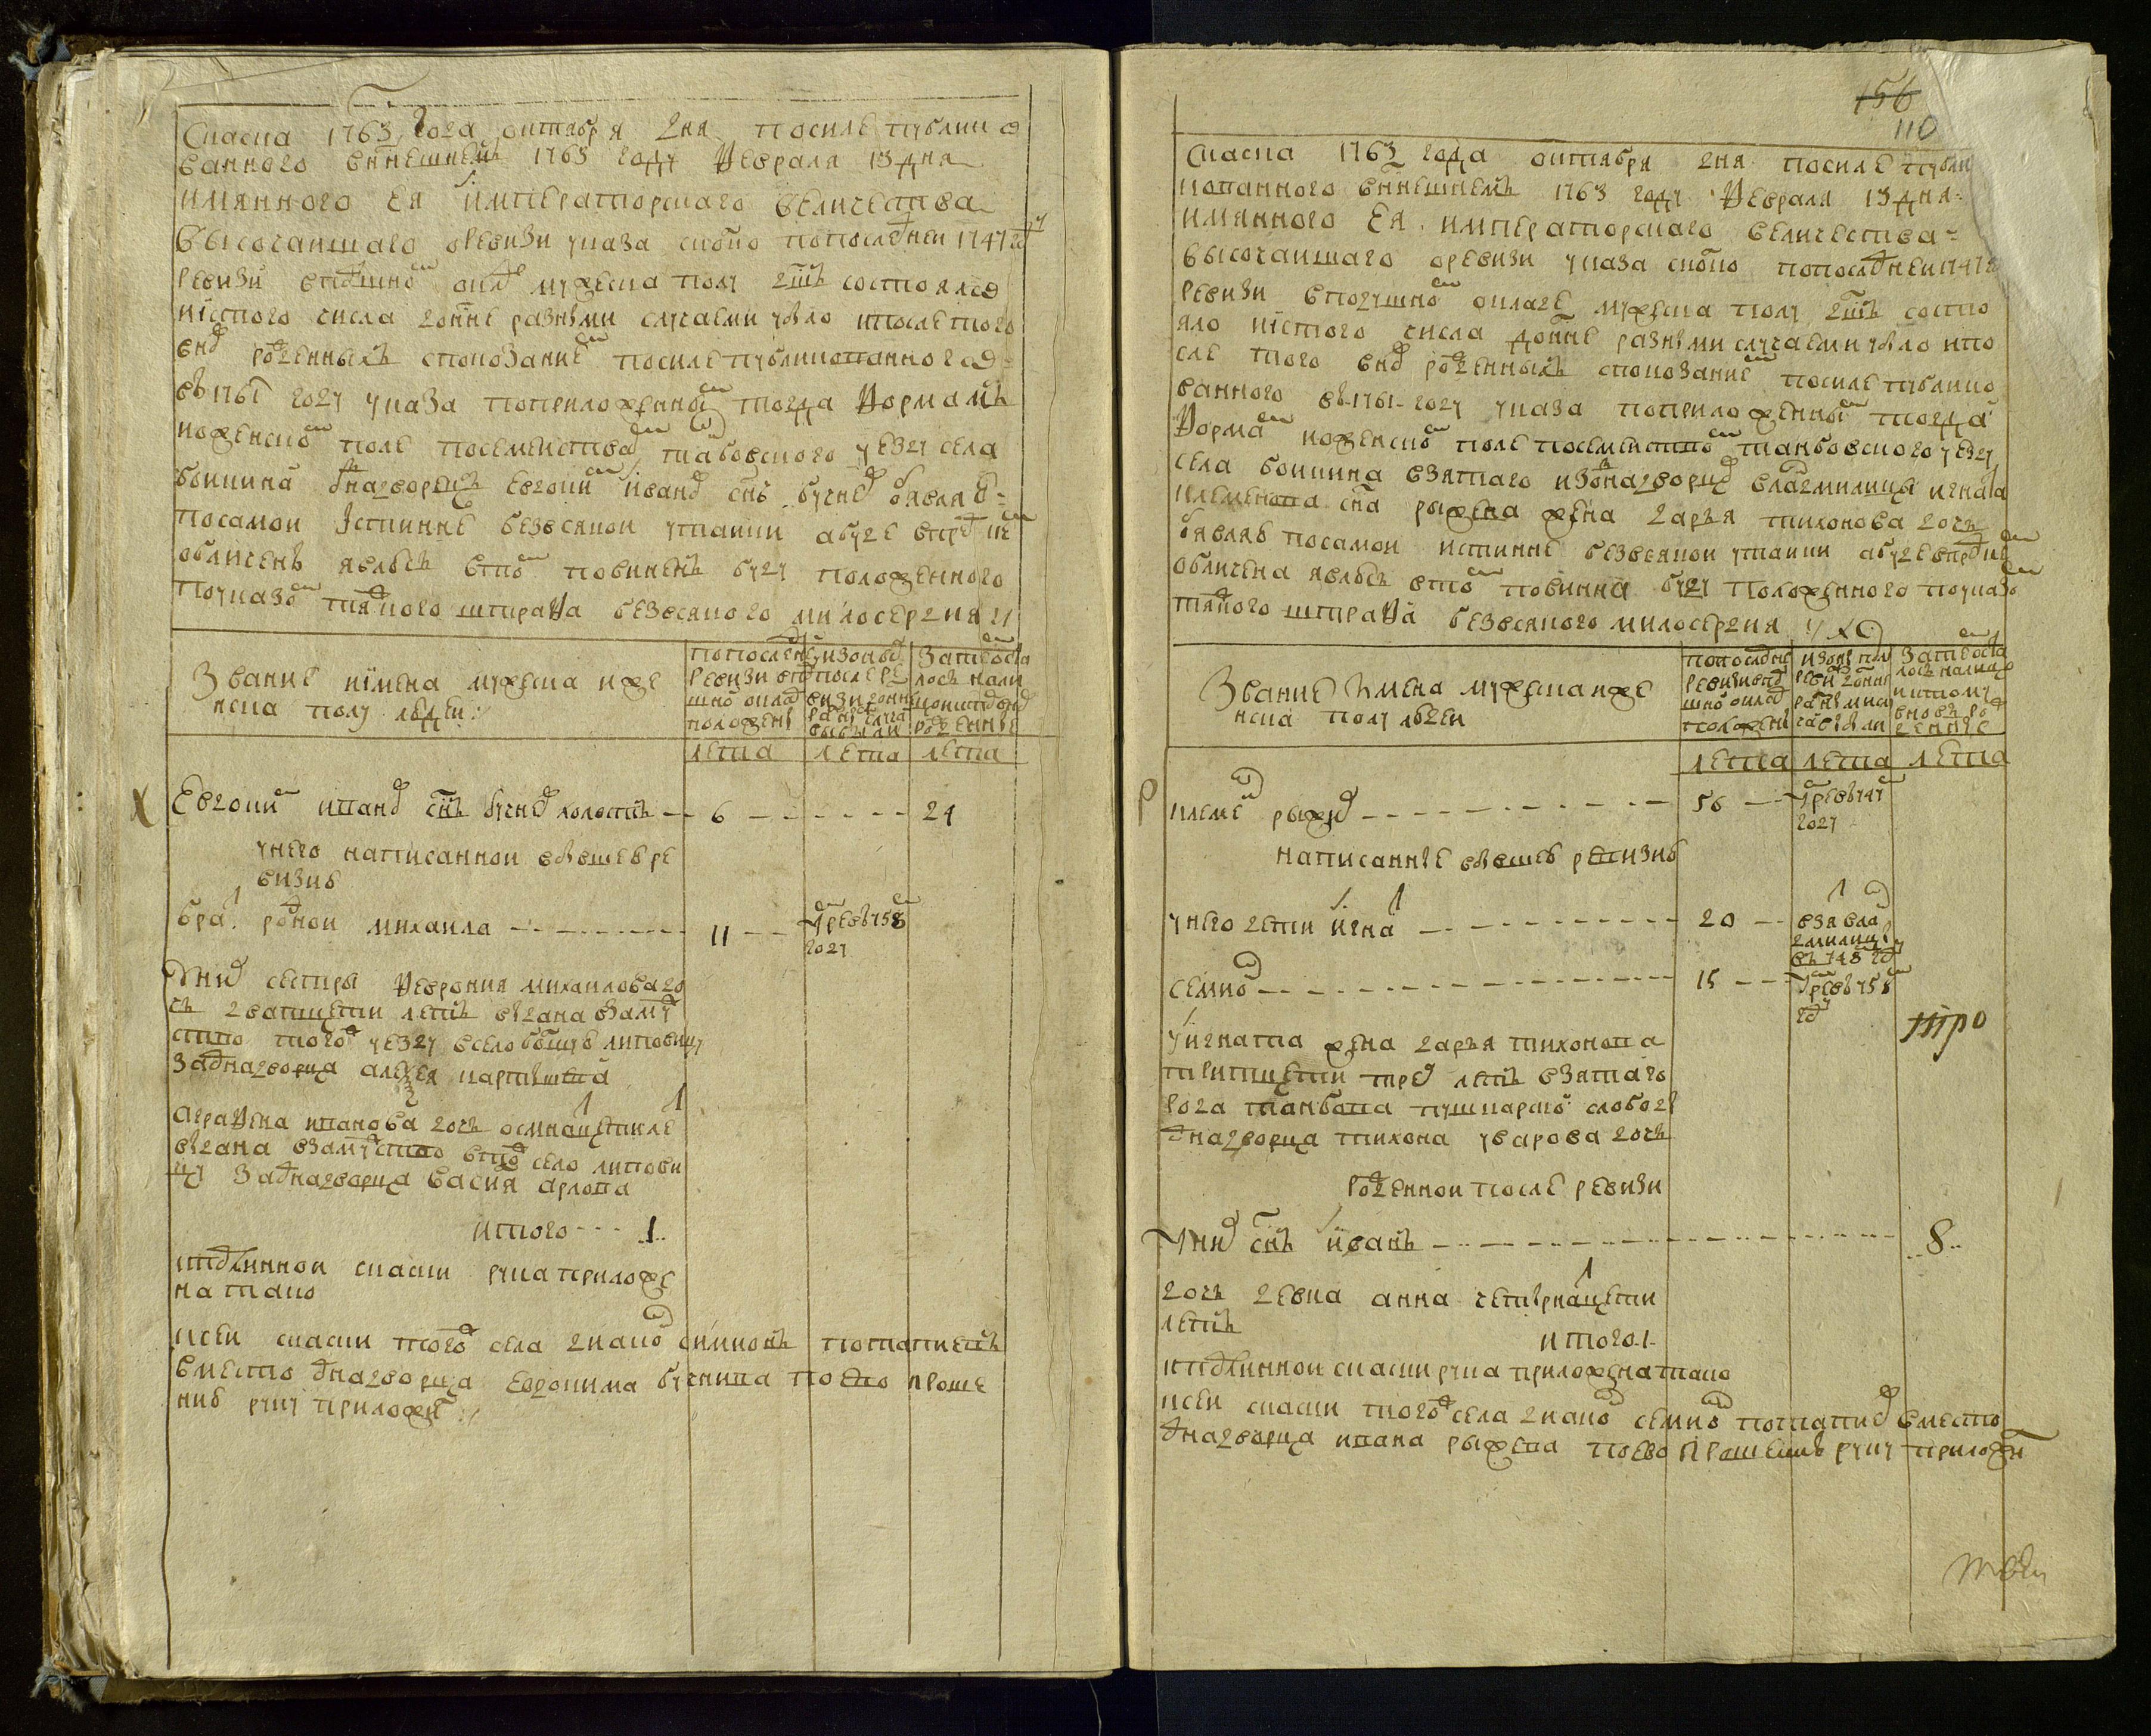 Скаска 1763 года октября дня посиле публико
ванного внынешнемъ 1763 году февраля 13 дня
имянного ея императорскаго величества
высочаишаго оревизи указа сколко попоследнеи 1747 г
ревизи вподушном окладе мужеска полу душъ состоялсо
иистого числа доныне разными случаеми убыло ипосле того
вновь рожденныхъ споказанием посиле публикованного
въ 1761 году указа поприложенной тогда формамъ
иоженском поле посеменствам танбовского уезду села
боикина однадворецъ Евдоким иванов снъ бучнев обявляю
посамои Iстинне безовсякои утаики абуде впред кем
обличенъ явлюсь втом повиненъ буду положенного
поуказом тяжкого штрафа безовсякого милосердия
Звание иимена мужеска иже
нска полу людеи
попоследнеи ревизи вподушном окладе положены
изоных после ревизи доныне разными случаи выбыли
Затем осталось налицо ипотому вновь рожденные
лета лета лета
Евдоким иванов снъ бучнев холостъ 6 24
унего написаннои въ тоеже ре
визию
брат роднои михаила 11 умре в 758
году
Уних сестры Феврония михаилова до
чь дватцети летъ выдана взаму
ство того уезду всело боишу липовицу
За однадворца алексея партышева
аграфена иванова дочь осмнацети ле
выдана взамуство втож село липови
цу За однадворца васия арлова
итого 1
кподлиннои скаски рука приложе
на тако
ксеи скаски того села дьякон симионъ потапиевъ
вместо однадворца евдокима бучнива поево проше
нию руку приложил
156
110
Скаска 1763 года октября дня посиле публи
кованного внынешнемъ 1763 году февраля 13 дня
имянного Ея императорскаго величества
высочаишаго оревизи указа сколко попоследнеи 1747 г
ревизи вподушном окладе мужеска полу душъ состо
яло иистого числа доныне разными случаеми убыло ипо
сле того вновь рожденныхъ споказанием посиле публико
ванного въ 1761 году указа поприложенным тогда
формам иоженском поле посеменством танбовского уезду
села боикина взятаго изоднадворцов владмилицы игната
клеменова сна рыжева жена дарья тихонова дочь
обявляю посамои истинне безвсякои утаики абуде впред кем
обличена явлюсь втом повинна буду положенного поуказом
тяжкого штрафа безвсякого милосердия
Звание имена мужеска иже
нска полу людеи
попоследнеи ревизи вподушном окладе положены
изоных после ревизи доныне разными случаи убыли
Затем осталось налицо ипотому вновь рожденные
лета лета лета
клемен рыжев 56 умре в 747
году
написанные въ тоеже ревизию
унего дети игнат 20 взят влад
милицы
въ 748 год
семион 15 умре в 758
год
про
У игната жена дарья тихонова
тритцети трех летъ взятаго
года танбова пушкарской слободы
однадворца тихона уварова дочь
рожденнои после ревизи
Уних снъ иванъ 8
дочь девка анна четырнацети
летъ
итого 1
кподлиннои скаски рука приложена тако
ксеи скаски того села дьякон семион потапиев вместо
однадворца ивана рыжева поево прошению руку приложил